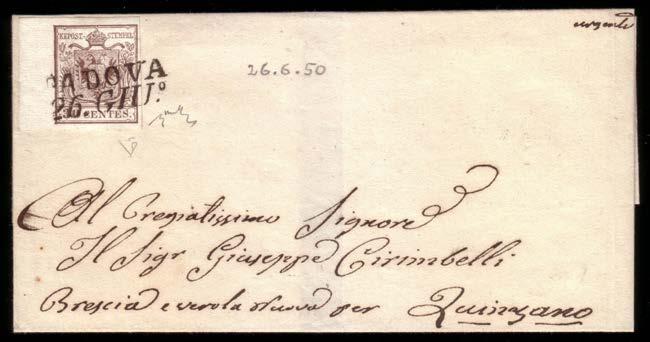 urgente
KKPOST-STEMPEL
PADOVA
26. GIU.º
30 CENTES.
26.6.50
Al Pregiatissimo Signore
Il Sigr Giuseppe Cirimbelli
Brescia e verola Nuova per Quinzano